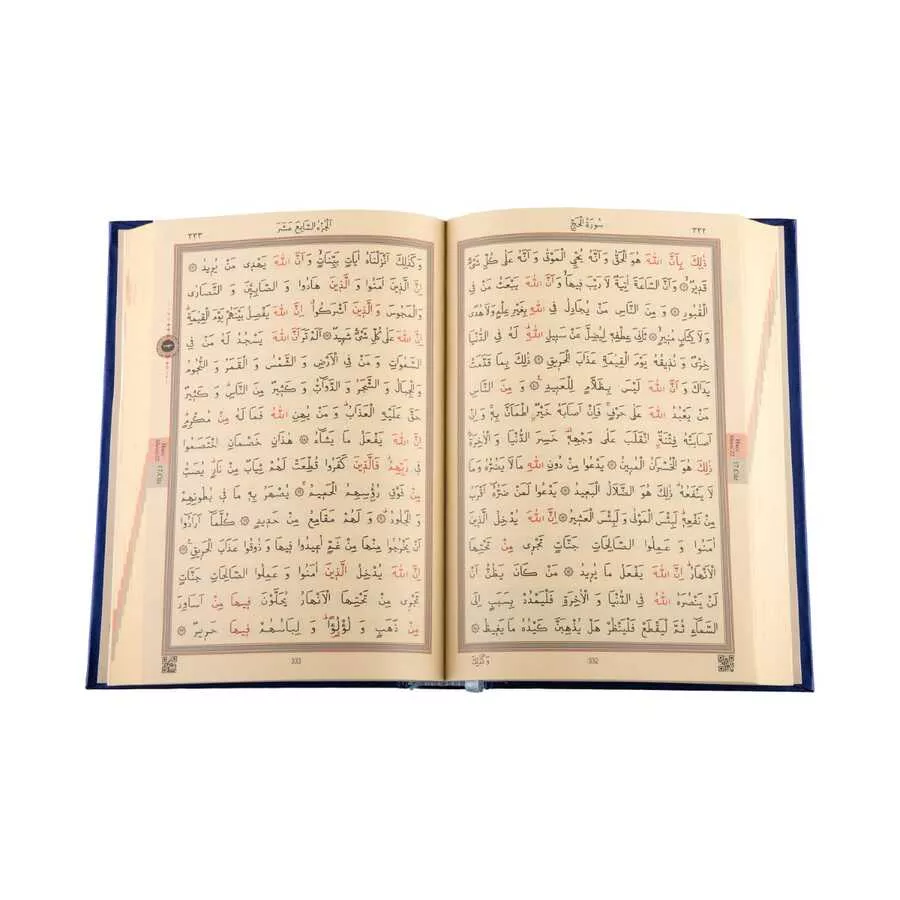 سُورَةُ الْحَجِّ
٣٣٢
ذٰلِكَ بِاَنَّ اللّٰهَ هُوَ الْحَقُّ وَ اَنَّهُ يُحْيِ الْمَوْتٰى وَ اَنَّهُ عَلٰى كُلِّ شَيْءٍ
قَدٖيرٌ ۞ وَ اَنَّ السَّاعَةَ اٰتِيَةٌ لَا رَيْبَ فٖيهَا وَ اَنَّ اللّٰهَ يَبْعَثُ مَنْ فِي
الْقُبُورِ ۞ وَ مِنَ النَّاسِ مَنْ يُجَادِلُ فِي اللّٰهِ بِغَيْرِ عِلْمٍ وَلَا هُدًى
وَلَا كِتَابٍ مُنٖيرٍ ۞ ثَانِيَ عِطْفِهٖ لِيُضِلَّ عَنْ سَبٖيلِ اللّٰهِ لَهُ فِي الدُّنْيَا
خِزْيٌ وَ نُذٖيقُهُ يَوْمَ الْقِيٰمَةِ عَذَابَ الْحَرٖيقِ ۞ ذٰلِكَ بِمَا قَدَّمَتْ
يَدَاكَ وَ اَنَّ اللّٰهَ لَيْسَ بِظَلَّامٍ لِلْعَبٖيدِ ۞ وَ مِنَ النَّاسِ
مَنْ يَعْبُدُ اللّٰهَ عَلٰى حَرْفٍ فَاِنْ اَصَابَهُ خَيْرٌ اطْمَاَنَّ بِهٖ وَ اِنْ
اَصَابَتْهُ فِتْنَةٌ انْقَلَبَ عَلٰى وَجْهِهٖ خَسِرَ الدُّنْيَا وَ الْاٰخِرَةَ
ذٰلِكَ هُوَ الْخُسْرَانُ الْمُبٖينُ ۞ يَدْعُوا مِنْ دُونِ اللّٰهِ مَا لَا يَضُرُّهُ وَمَا
لَا يَنْفَعُهُ ذٰلِكَ هُوَ الضَّلَالُ الْبَعٖيدُ ۞ يَدْعُوا لَمَنْ ضَرُّهُ اَقْرَبُ
مِنْ نَفْعِهٖ لَبِئْسَ الْمَوْلٰى وَ لَبِئْسَ الْعَشٖيرُ ۞ اِنَّ اللّٰهَ يُدْخِلُ الَّذٖينَ
اٰمَنُوا وَ عَمِلُوا الصَّالِحَاتِ جَنَّاتٍ تَجْرٖي مِنْ تَحْتِهَا
الْاَنْهَارُ اِنَّ اللّٰهَ يَفْعَلُ مَا يُرٖيدُ ۞ مَنْ كَانَ يَظُنُّ اَنْ
لَنْ يَنْصُرَهُ اللّٰهُ فِي الدُّنْيَا وَ الْاٰخِرَةِ فَلْيَمْدُدْ بِسَبَبٍ اِلَى
السَّمَاءِ ثُمَّ لْيَقْطَعْ فَلْيَنْظُرْ هَلْ يُذْهِبَنَّ كَيْدُهُ مَا يَغٖيظُ ۞
332
وَ كَذٰلِكَ
اَلْجُزْءُ السَّابِعَ عَشَرَ
٣٣٣
وَ كَذٰلِكَ اَنْزَلْنَاهُ اٰيَاتٍ بَيِّنَاتٍ وَ اَنَّ اللّٰهَ يَهْدٖي مَنْ يُرٖيدُ ۞
اِنَّ الَّذٖينَ اٰمَنُوا وَ الَّذٖينَ هَادُوا وَ الصَّابِـٖٔينَ وَ النَّصَارٰى
وَ الْمَجُوسَ وَ الَّذٖينَ اَشْرَكُوا اِنَّ اللّٰهَ يَفْصِلُ بَيْنَهُمْ يَوْمَ الْقِيٰمَةِ
اِنَّ اللّٰهَ عَلٰى كُلِّ شَيْءٍ شَهٖيدٌ ۞ اَلَمْ تَرَ اَنَّ اللّٰهَ يَسْجُدُ لَهُ مَنْ فِي
السَّمٰوَاتِ وَ مَنْ فِي الْاَرْضِ وَ الشَّمْسُ وَ الْقَمَرُ وَ النُّجُومُ
وَ الْجِبَالُ وَ الشَّجَرُ وَ الدَّوَابُّ وَ كَثٖيرٌ مِنَ النَّاسِ وَ كَثٖيرٌ
حَقَّ عَلَيْهِ الْعَذَابُ وَ مَنْ يُهِنِ اللّٰهُ فَمَا لَهُ مِنْ مُكْرِمٍ
اِنَّ اللّٰهَ يَفْعَلُ مَا يَشَاءُ ۞ هٰذَانِ خَصْمَانِ اخْتَصَمُوا
فٖي رَبِّهِمْ فَالَّذٖينَ كَفَرُوا قُطِّعَتْ لَهُمْ ثِيَابٌ مِنْ نَارٍ يُصَبُّ
مِنْ فَوْقِ رُؤُسِهِمُ الْحَمٖيمُ ۞ يُصْهَرُ بِهٖ مَا فٖي بُطُونِهِمْ
وَ الْجُلُودُ ۞ وَ لَهُمْ مَقَامِعُ مِنْ حَدٖيدٍ ۞ كُلَّمَا اَرَادُوا
اَنْ يَخْرُجُوا مِنْهَا مِنْ غَمٍّ اُعٖيدُوا فٖيهَا وَ ذُوقُوا عَذَابَ الْحَرٖيقِ ۞
اِنَّ اللّٰهَ يُدْخِلُ الَّذٖينَ اٰمَنُوا وَ عَمِلُوا الصَّالِحَاتِ جَنَّاتٍ
تَجْرٖي مِنْ تَحْتِهَا الْاَنْهَارُ يُحَلَّوْنَ فٖيهَا مِنْ اَسَاوِرَ
مِنْ ذَهَبٍ وَ لُؤْلُؤًا وَ لِبَاسُهُمْ فٖيهَا حَرٖيرٌ ۞
333